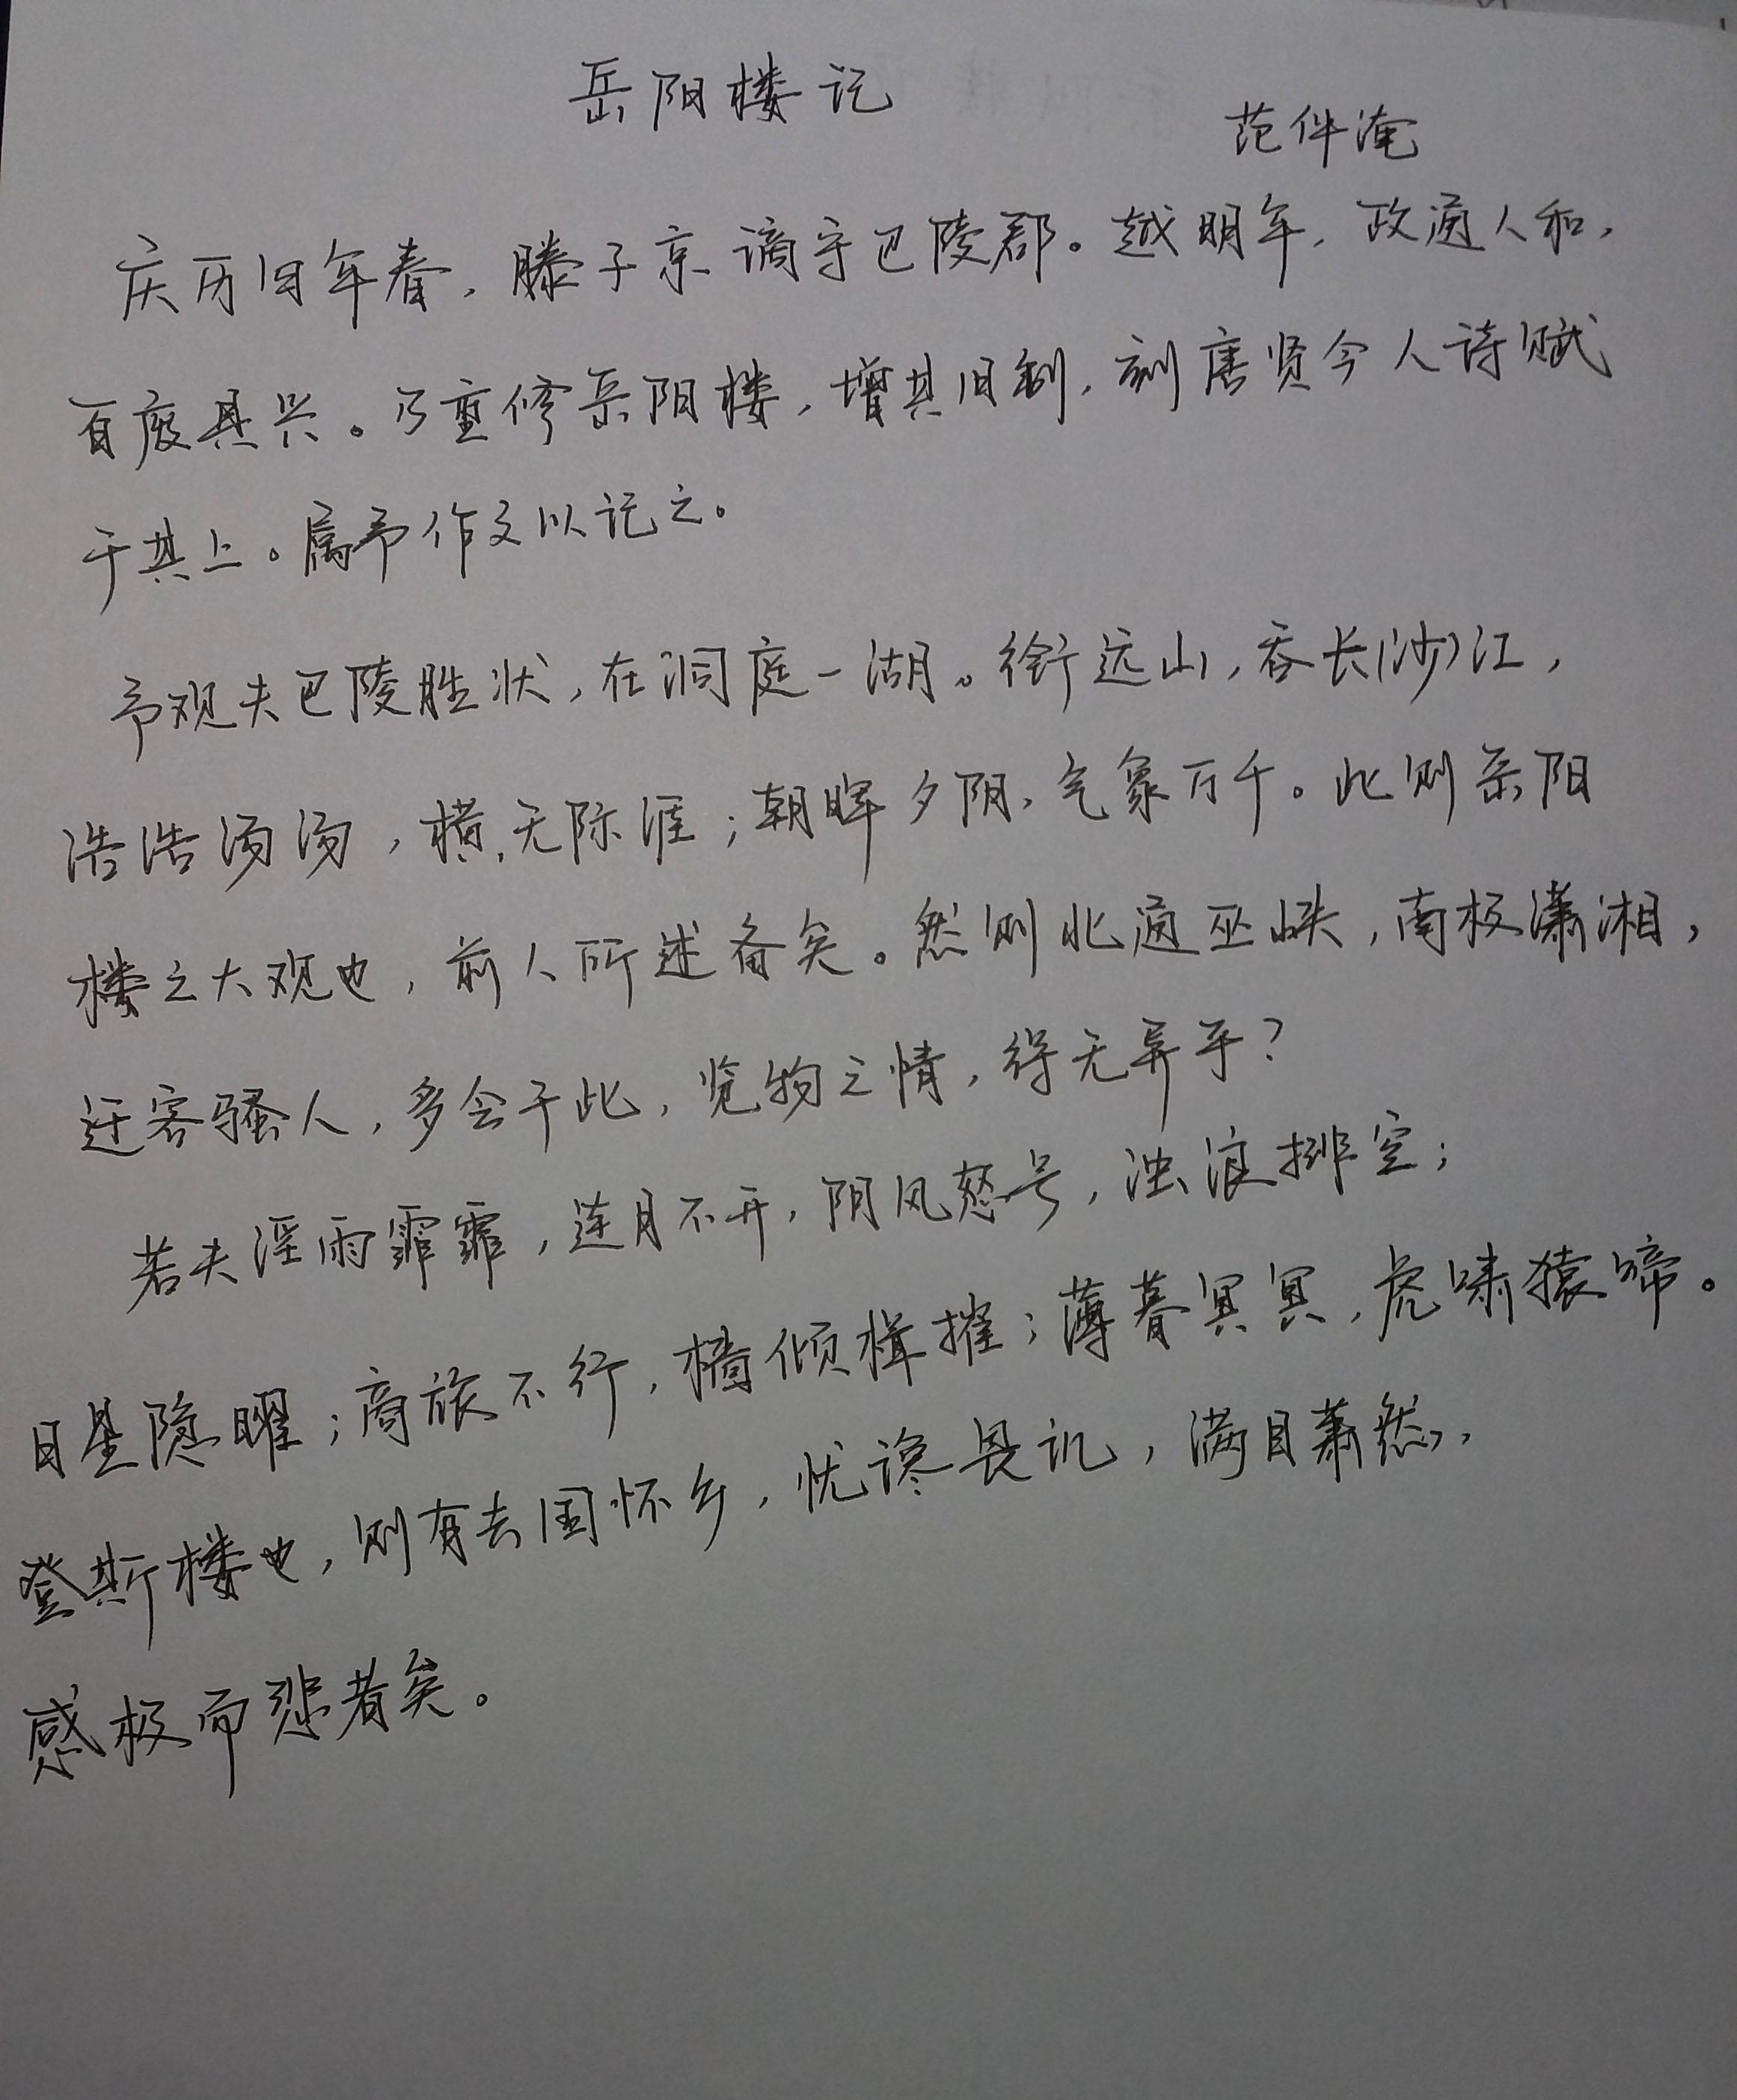 岳阳楼记
范仲淹
庆历四年春，滕子京谪守巴陵郡。越明年，政通人和，
百废具兴。乃重修岳阳楼，增其旧制，刻唐贤今人诗赋
于其上。属予作文以记之。
予观夫巴陵胜状，在洞庭一湖。衔远山，吞长(沙)江，
浩浩汤汤，横无际涯；朝晖夕阴，气象万千。此则岳阳
楼之大观也，前人所述备矣。然则北通巫峡，南极潇湘，
迁客骚人，多会于此，览物之情，得无异乎？
若夫淫雨霏霏，连月不开，阴风怒号，浊浪排空；
日星隐曜；商旅不行，樯倾楫摧；薄暮冥冥，虎啸猿啼。
登斯楼也，则有去国怀乡，忧谗畏讥，满目萧然，
感极而悲者矣。